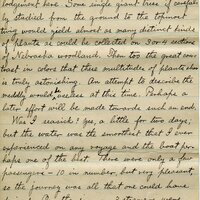 lodgment here. Some single giant trees if carefully
studied from the ground to the topmost
twig would yield almost as many distinct kinds
of plants as could be collected on 3 or 4 sections
of Nebraska woodland. Then too the great contrast
in colors that these multitude of plants show
is truly astonishing. An attempt to describe the
medley would be useless at this time. Perhaps a
later effort will be made towards such an end.
Was I seasick? Yes, a little for two days;
but the water was the smoothest that I ever
experienced on any voyage and the boat perhaps
one of the best. There were only a few
passengers - 10 in number, but very pleasant,
so the journey was all that one could have